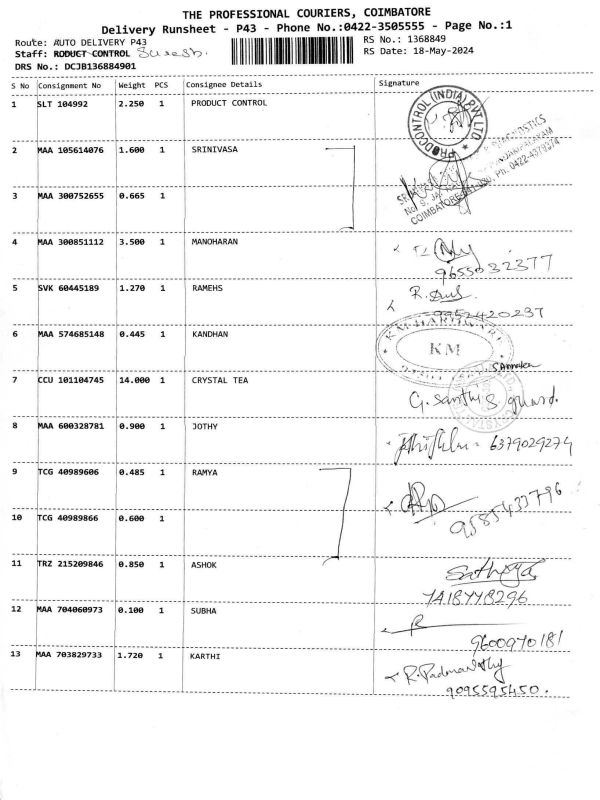 THE PROFESSIONAL COURIERS, COIMBATORE
Delivery Runsheet - P43 - Phone No.:0422-3505555 - Page No.:1
Route: AUTO DELIVERY P43 RS No.: 1368849
Staff: RODUCT CONTROL Suresh. RS Date: 18-May-2024
DRS No.: DCJB136884901
S No Consignment No Weight PCS Consignee Details Signature
1 SLT 104992 2.250 1 PRODUCT CONTROL
PRODCONTROL (INDIA) PVT LTD
2 MAA 105614076 1.600 1 SRINIVASA
3 MAA 300752655 0.665 1
COIMBATORE Ph: 0422-4379374
4 MAA 300851112 3.500 1 MANOHARAN
9655032377
5 SVK 60445189 1.270 1 RAMEHS
9952420237
6 MAA 574685148 0.445 1 KANDHAN
KM HARDWARE
KM
7 CCU 101104745 14.000 1 CRYSTAL TEA
G. Santhi S guard.
8 MAA 600328781 0.900 1 JOTHY
6379029274
9 TCG 40989606 0.485 1 RAMYA
9585433796
10 TCG 40989866 0.600 1
11 TRZ 215209846 0.850 1 ASHOK
Sathya
7418448296
12 MAA 704060973 0.100 1 SUBHA
9600970181
13 MAA 703829733 1.720 1 KARTHI
R. Padmavathy
9095595450.